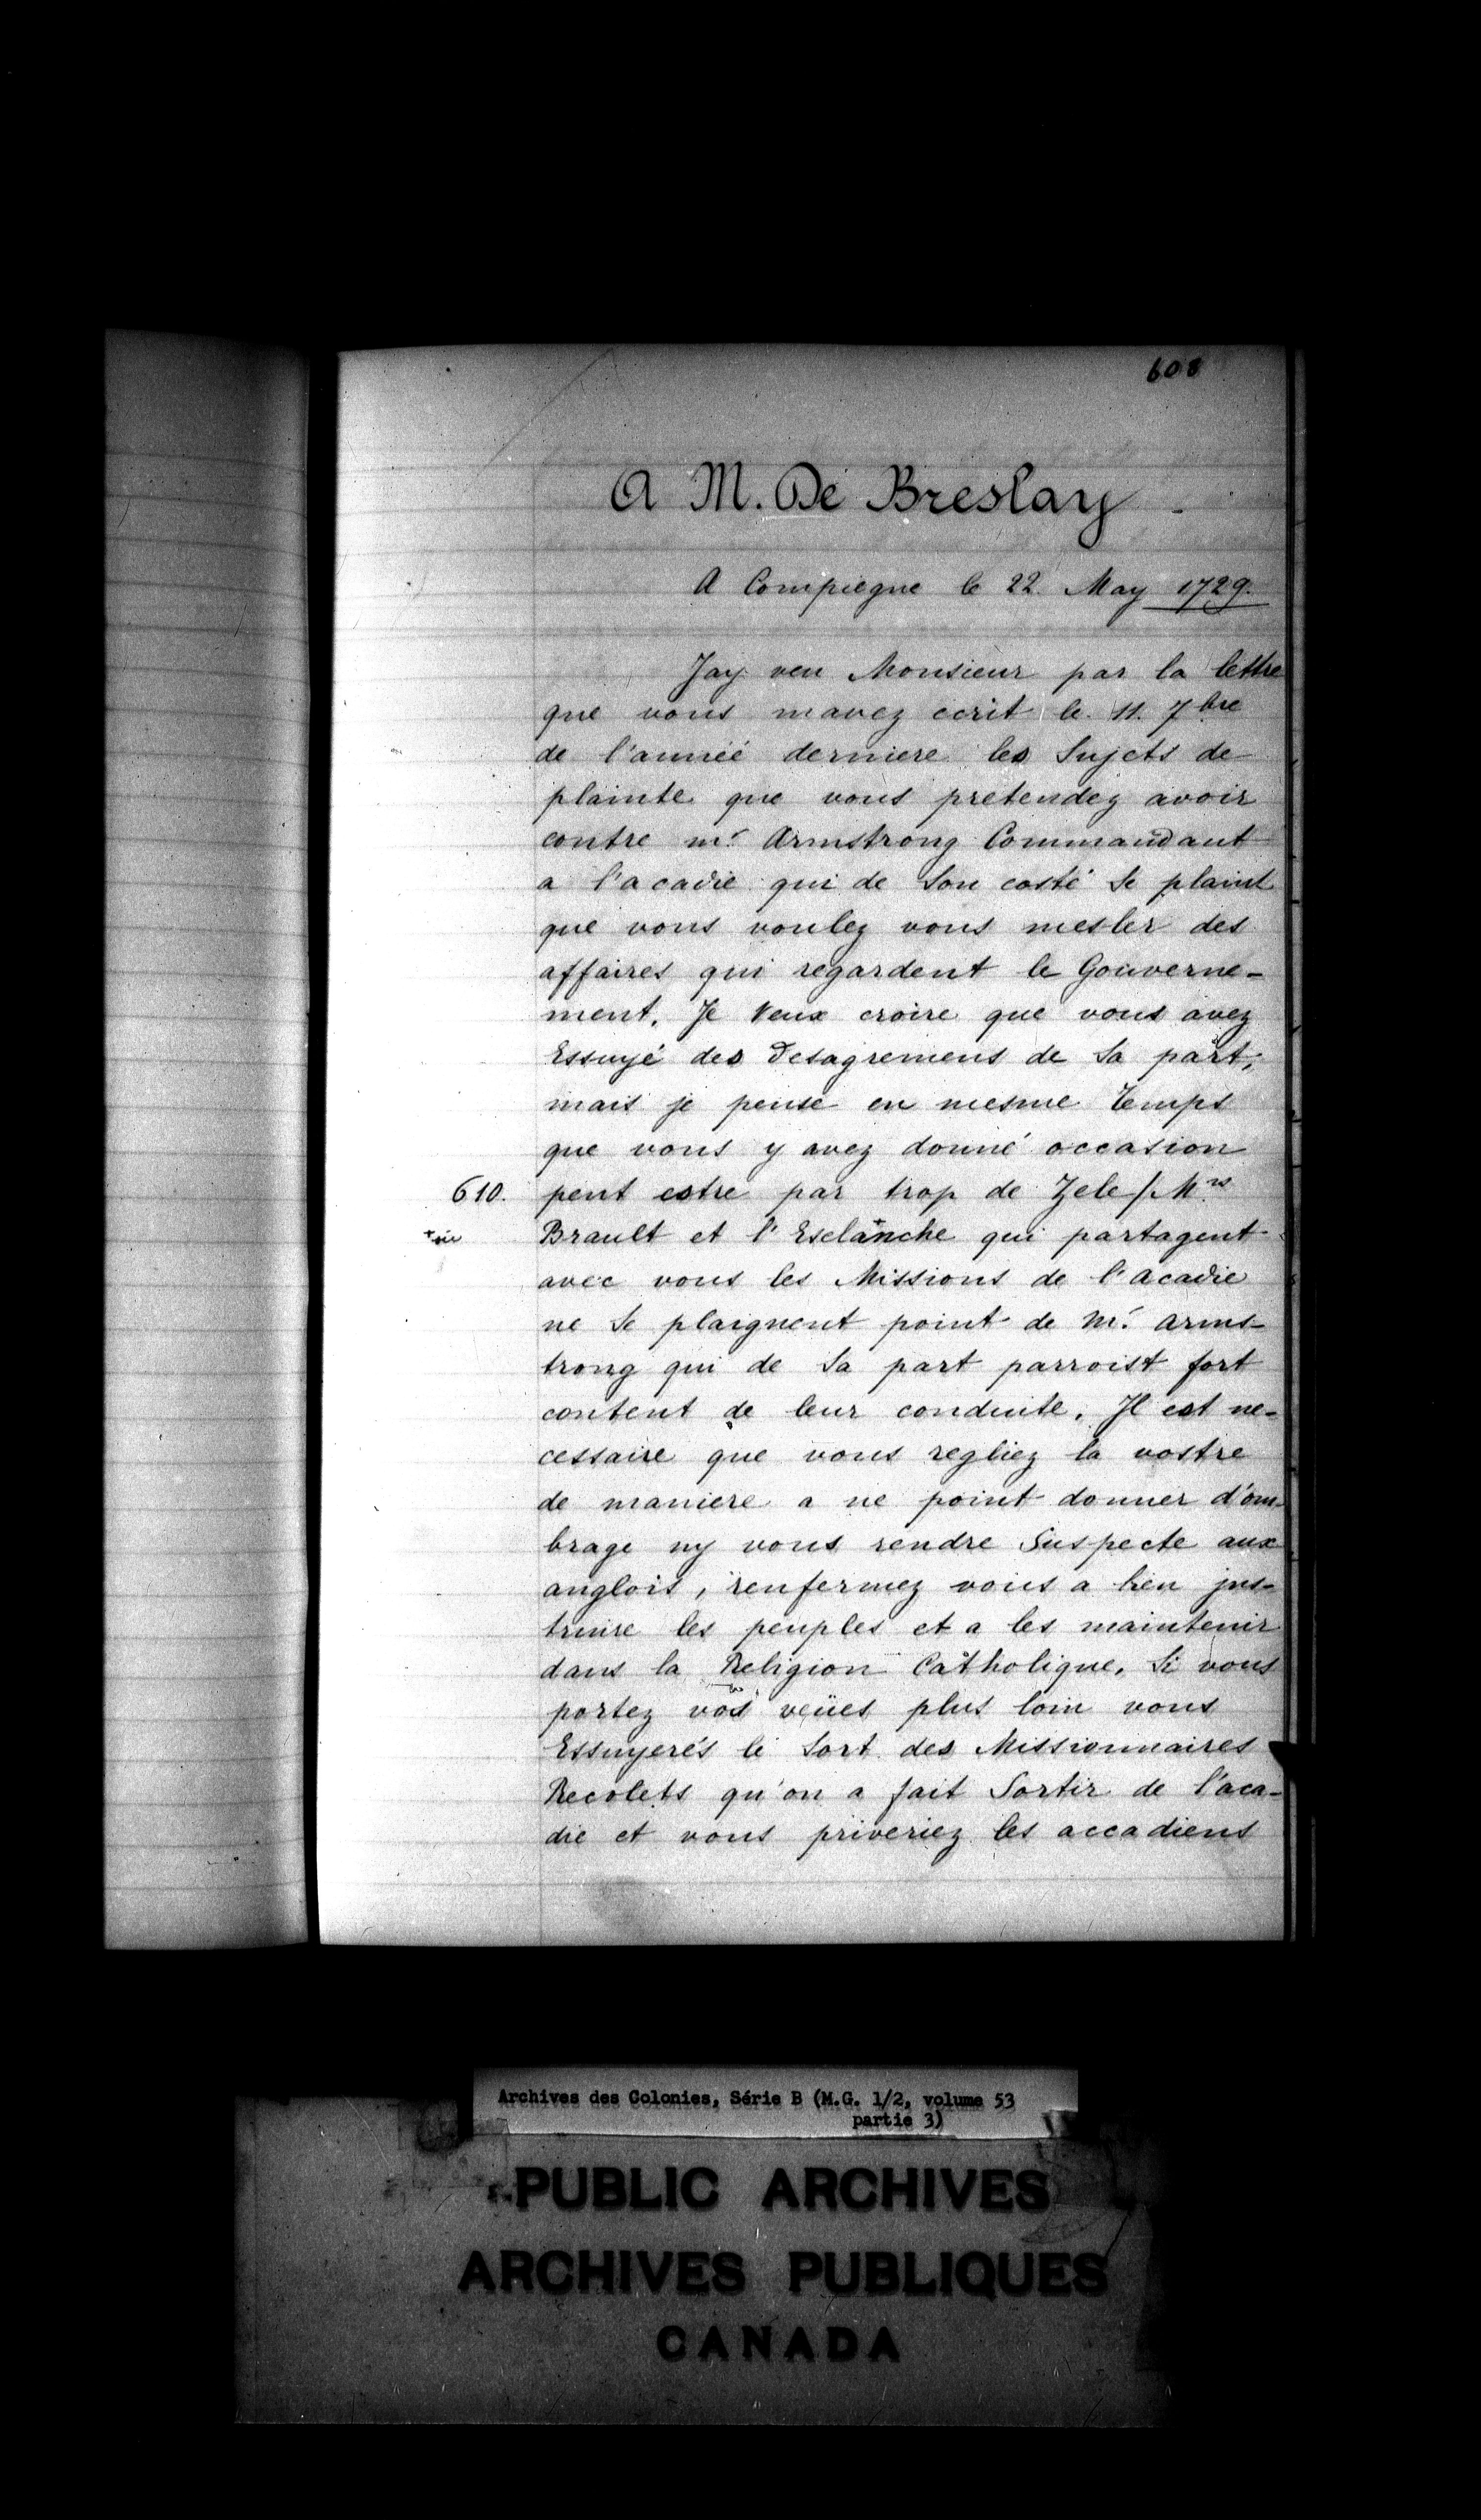 608
A M. De Breslay
A Compiegne le 22 May 1729.
Jay veu Monsieur par la lettre
que vous mavez ecrit le 11. 7bre
de l'année derniere les Sujets de
plainte que vous pretendez avoir
contre mr Armstrong Commandant
a l'acadie qui de Son costé Se plaint
que vous voulez vous mesler des
affaires qui regardent le Gouverne-
ment. Je Veux croire que vous avez
Essuyé des desagremens de Sa part,
mais je pense en mesme temps
que vous y avez donné occasion
610. peut estre par trop de Zele/Mrs
+ sic Brault et l'Esclanche + qui partagent
avec vous les Missions de l'acadie
ne Se plaignent point de Mr. arms-
trong qui de Sa part parroist fort
content de leur conduite. Il est ne-
cessaire que vous regliez la vostre
de maniere a ne point donner d'om-
brage ny vous rendre Suspecte aux
anglois, renfermez vous a bien ins-
truire les peuples et a les maintenir
dans la Religion Catholique. Si vous
portez vos veües plus loin vous
Essuyerés le Sort des Missionnaires
Recolets qu'on a fait Sortir de l'aca-
die et vous priveriez les accadiens
Archives des Colonies, Série B (M.G. 1/2, volume 53
partie 3)
PUBLIC ARCHIVES
ARCHIVES PUBLIQUES
CANADA